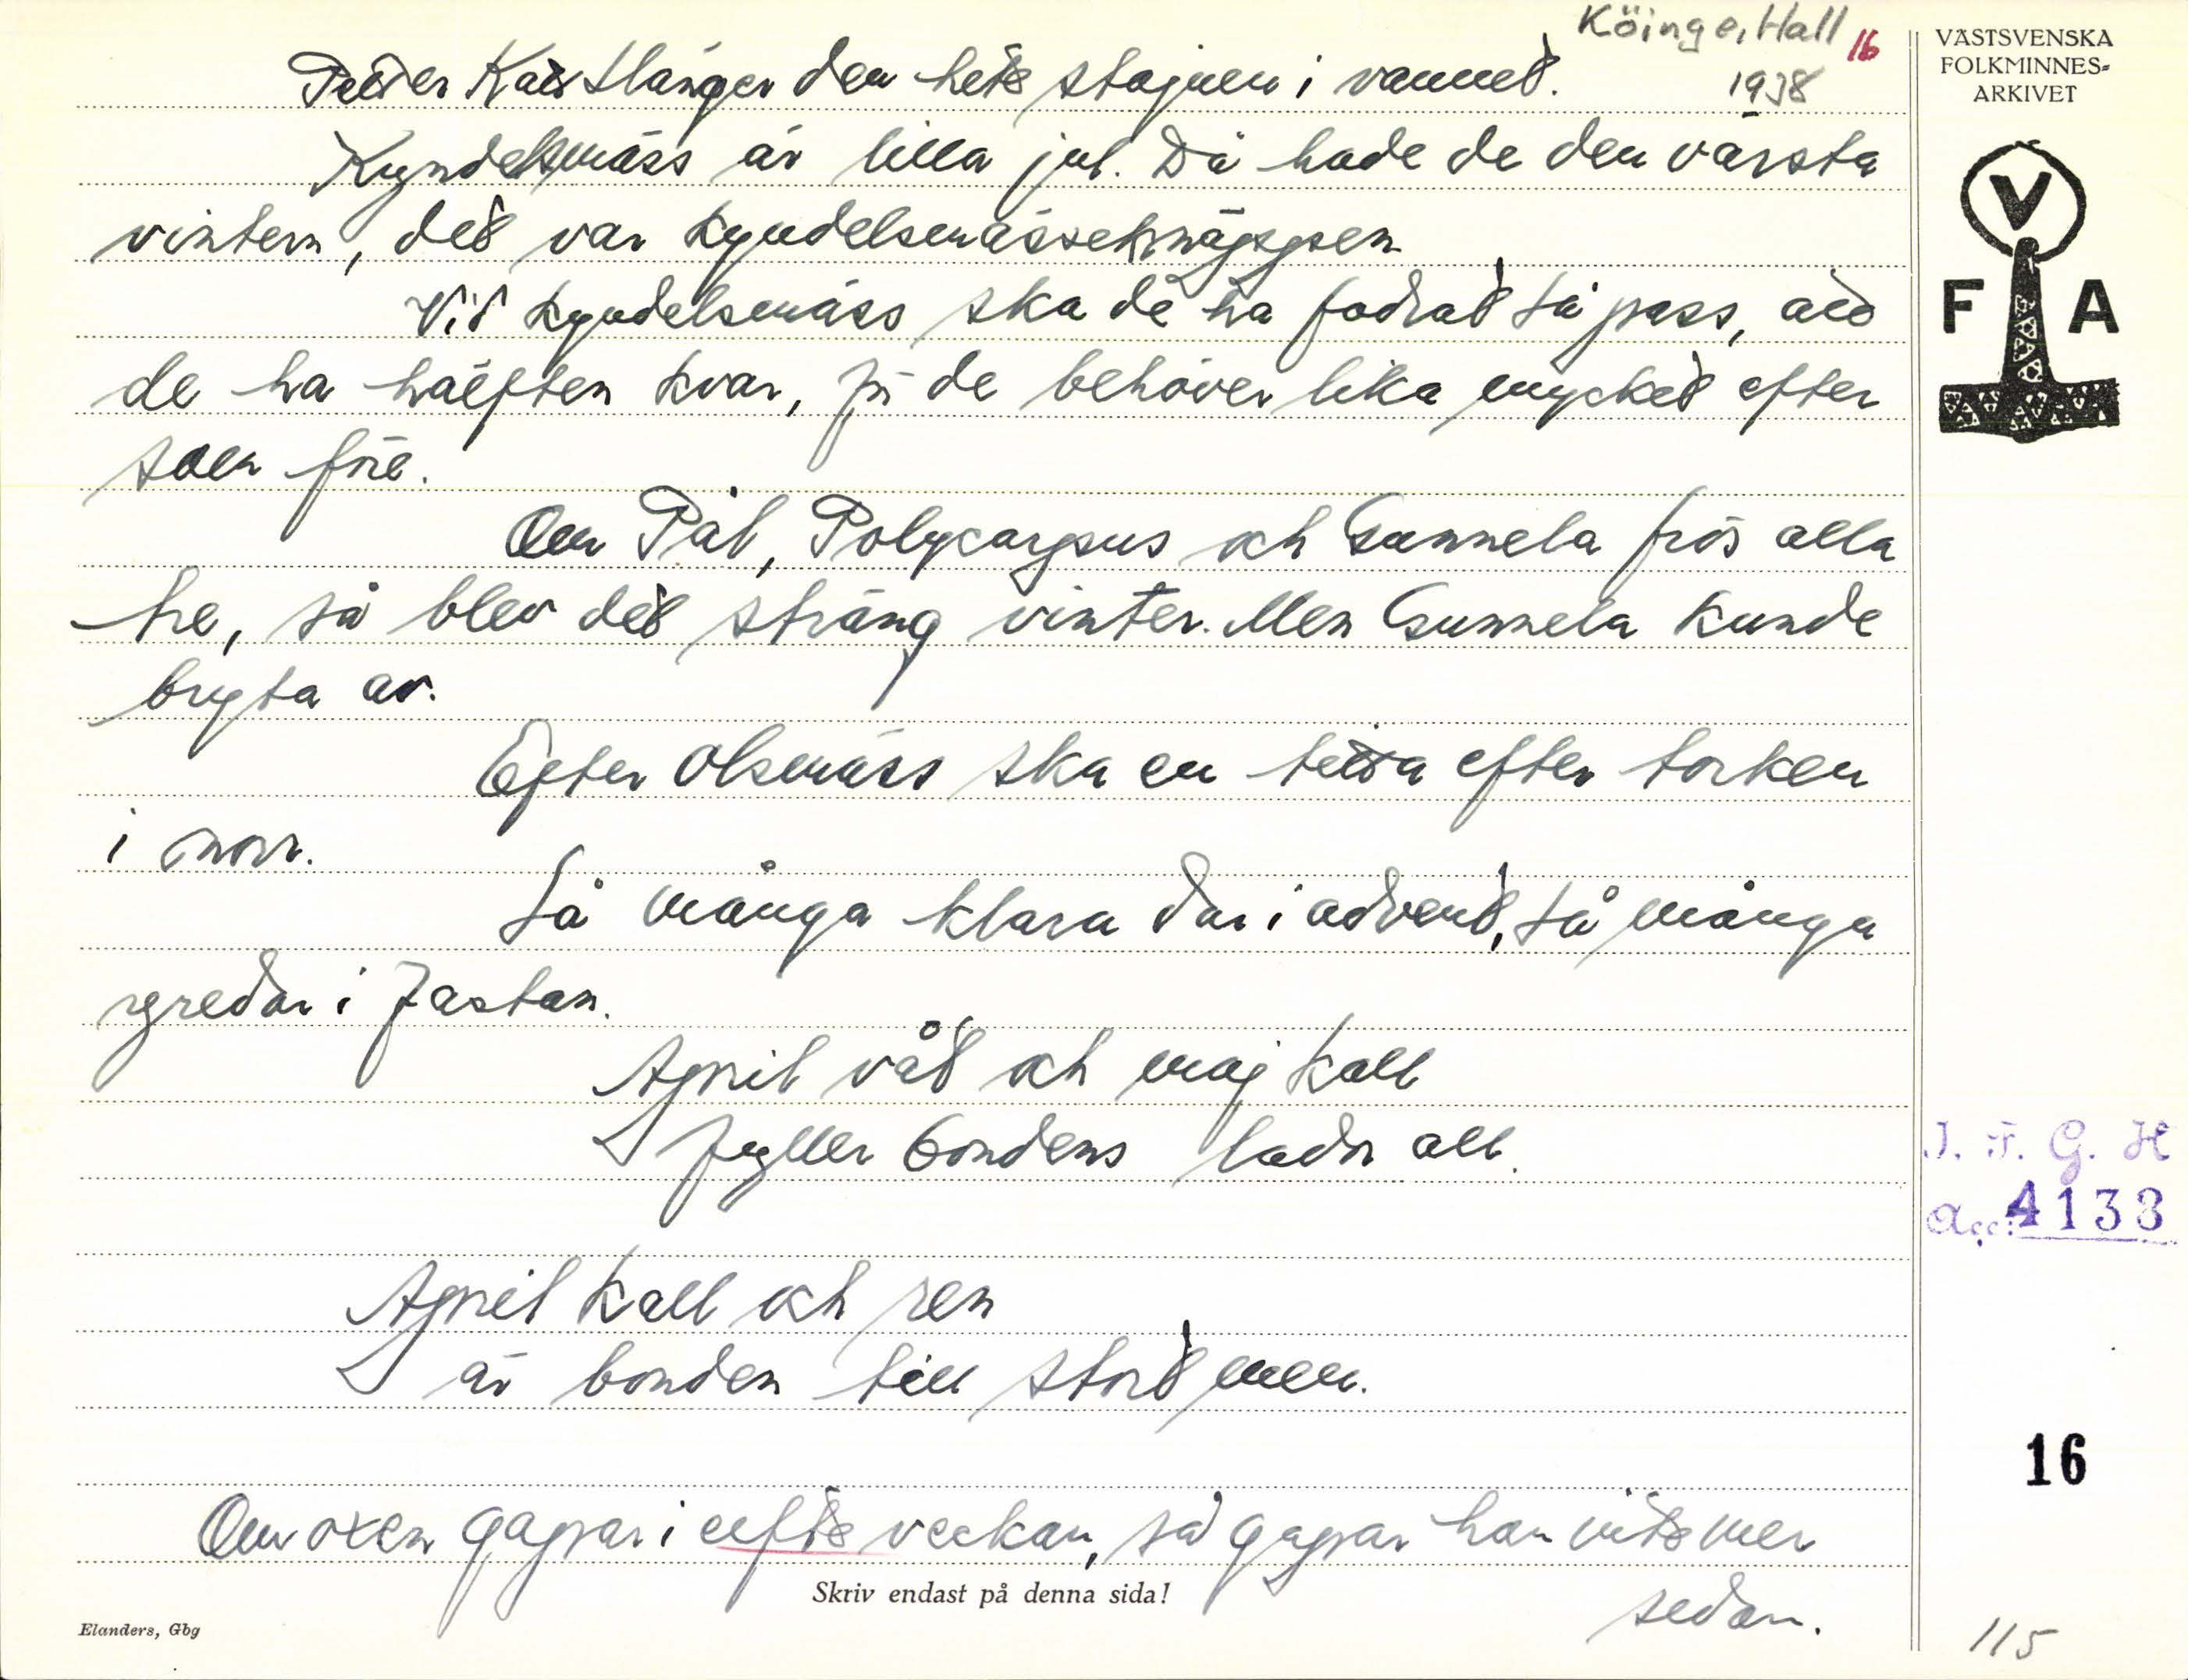 Köinge, Hall 16
1938
Petter Katt slänger den hete stajnen i vannet.
Kyndelsmäss är lilla jul. Då hade de den värsta
vintern, det var kyndelsmässeknäppen
Vid kyndelsmäss ska de ha fodrat så pass, att
de ha hälften kvar, för de behöver lika mycket efter
som före.
Om Pål, Polycarpus och Gunnela frös alla
tre, så blev det sträng vinter. Men Gunnela kunde
bryta av.
Efter Olsmäss ska en titta efter torken
i norr.
Så många klara dar i advent, så många
gredar i fastan.
April våt och maj kall
fyller bondens lador all.
April kall och ren
är bonden till stort men.
Om oxen gapar i veckan, så gapar han inte mer
sedan.
Skriv endast på denna sida!
Elanders, Gbg
VÄSTSVENSKA
FOLKMINNES=
ARKIVET
V
F A
I. F. G. H
Acc: 4133
16
115